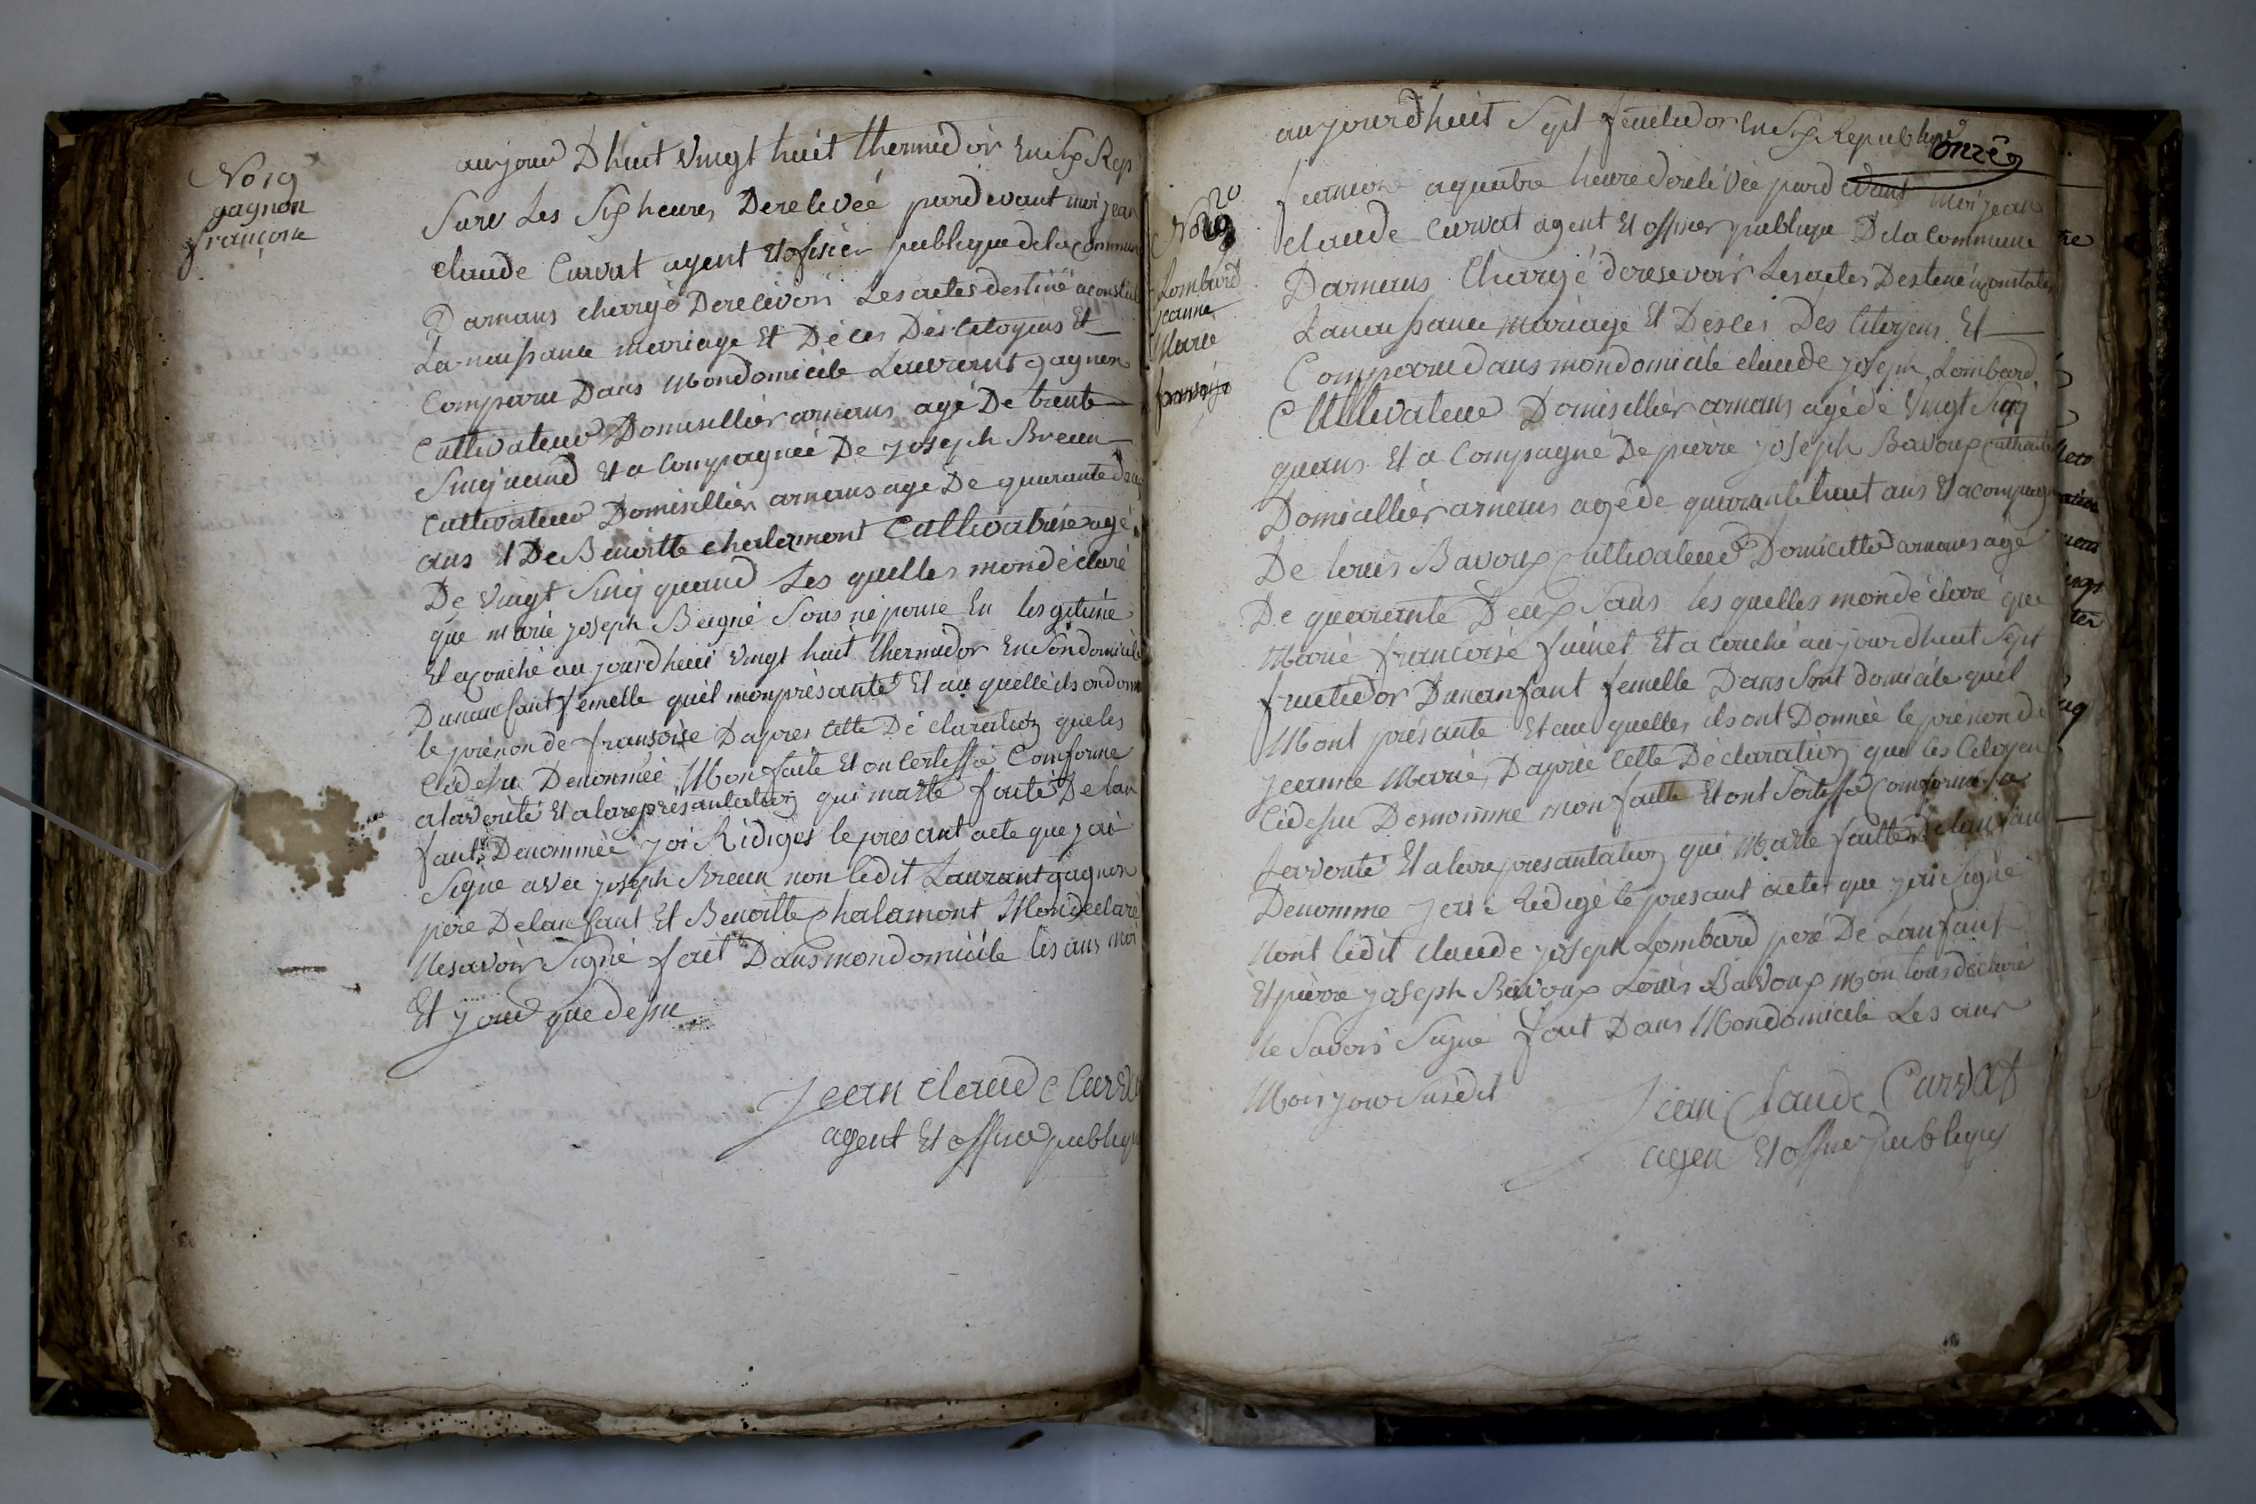 No 19
gagnon
françoise
aujour Dhuit vingt huit thermidor En Six Rep
Sure Les Six heures Derelevéé pardevant moi jean
claude Curvat agent Et ofisier publique de la Commun
Darnans chargé Derecevoir Les actes destiné a constat
La naissance mariage Et Déces Des Citoyens Et
Comparu Dans Mondomicile Laurant gagnon
Cultivateur Domisillier arnans agé De trente
Sinq Et a Compagnéé De joseph Breun
Cultivateur Domisillier arnans age De quarante deux
ans Et De Benoitte chalamont Cultivatrise agé
De vingt Sinq Les quelles mondéclaré
que marie joseph Sons népouse En les gitime
Et acouché au jourdheui vingt huit thermidor En Son domicile
Dunanfant femelle quil monprésanté Et au quelle ils ondonn
le prénon de françoise Dapres Cette Dé claration que les
Cidesu Denommée Mon faite Et on Certiffié Comforme
alaverité Et alarepresantation qui matte faite De lan
fant Denommée jai Rédiges le presant acte que jai
Signe avec joseph Breun non ledit Laurant gagnon
pere Delanfant Et Benoitte chalamont Mondéclaré
Nesavoir Signé fait Dans mondomicile les ans moi
Et jour que desu
Jean claude Curva
agent Et offise publiqu
onze
aujourdhuit Sept fructidor En Six Republique
a quatre heure Derelévée pard evant Moi jean
claude Curvat agent Et offisier publique Dela Commune
Darnans Chargé deresevoir Les actes Destiné a constater
La naissance mariage Et Déses Des Citoyens Et
Comparu dans mondomicile claude joseph Lombard
Cultivateur Domisillier arnans agé de vingt Sinq
quans Et a Compagné De pierre joseph Bavoux Cultivate
Domicillier arnans agé de quarante huit ans Et acompagn
De louis Bavoux Cultivateur Domicillé arnans agé
De quarante Deux Sans les quelles mondéclaré que
Marie francoise Et a couché aujourdhuit Sept
fructidor Dunanfant femelle Dans Sont domicile quil
Mont présanté Et au quelles ils ont Donnée le prénon de
jeanne Marie Daprée Cette Déclaration que les Citoyen
Cidesu Denomme mon faitte Et ont Sertiffié Comforme a
laverité Et alare presantation qui Matte faitte delanfan
Denomme jai Rédigé le presant acte que jai Signé
Nont lédit claude joseph Lombard pere De Lanfant
Et pierre joseph Bavoux Louis Bavoux Mon tous déclaré
Ne Savoir Signé fait Dans Mondomicile Les ans
Mois jour Susdit
Jean Claude Curvat
agen Et offise publique
No 20
Lombard
Jeanne
Marie